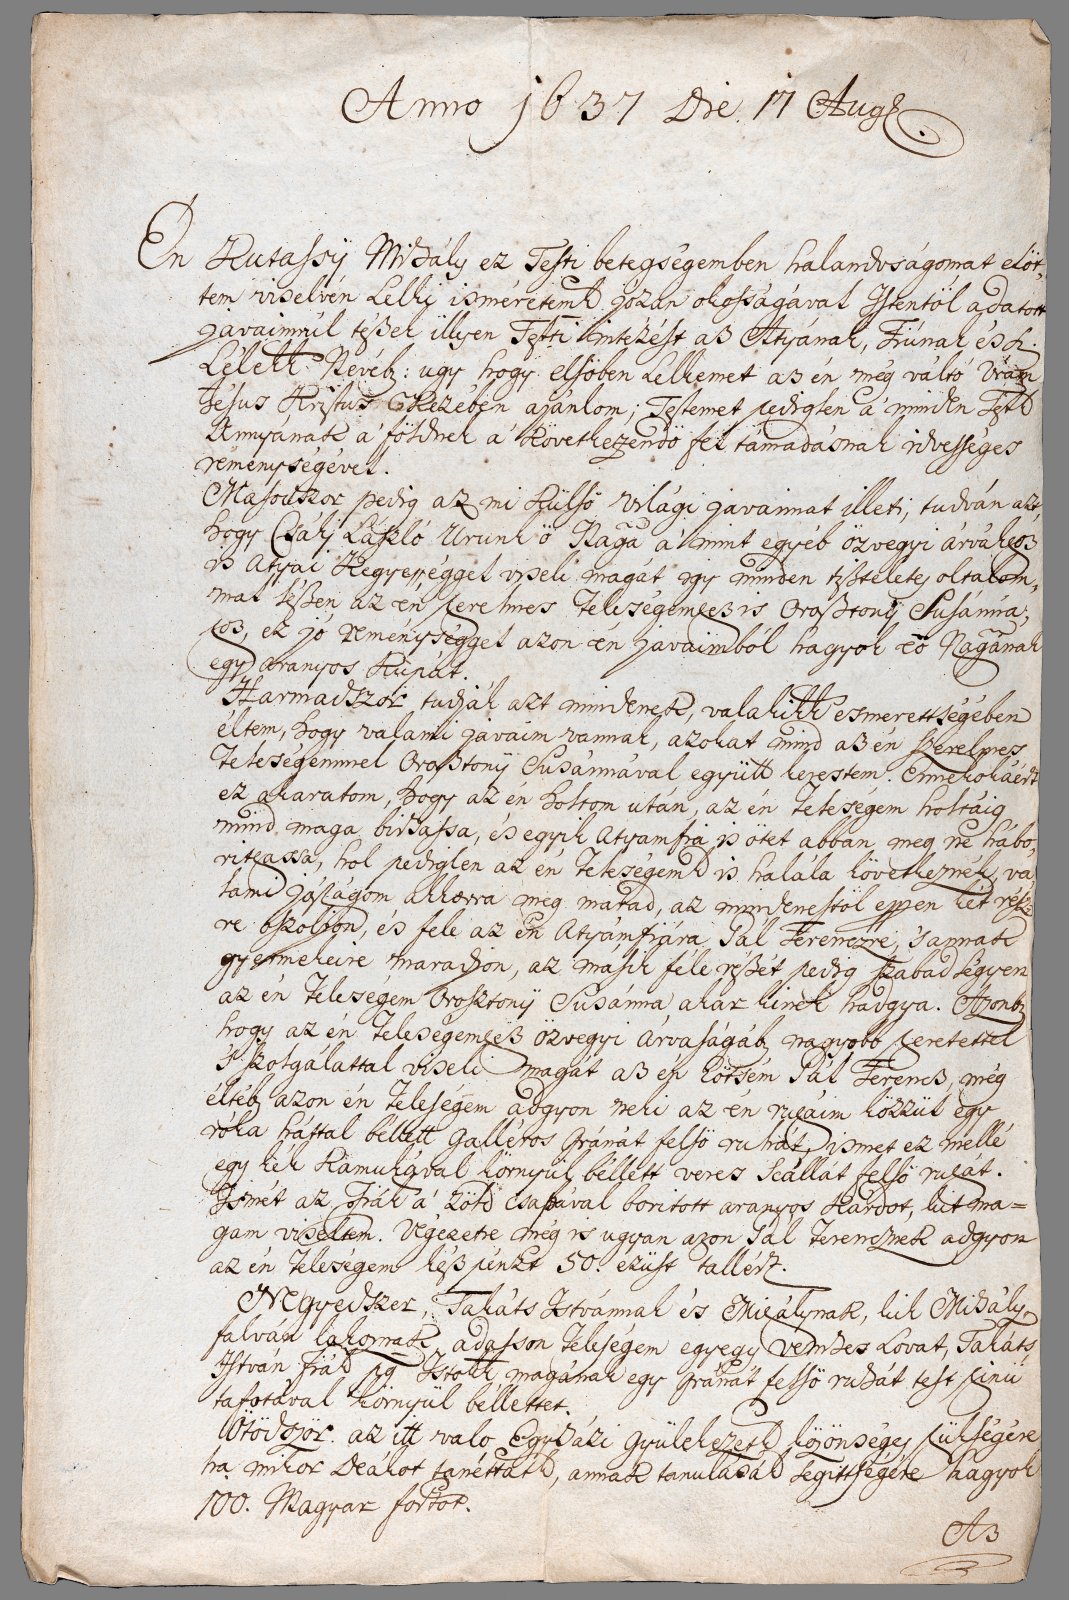 Anno 1637 Die 17 Aug
Én Kutassÿ Mihály ez Testi betegségemben halandóságomat elöt„
tem viselvén Lelki isméretem józan okosságával Istentöl adatott
javaimrúl tészek illyen Testi intézést asz Atyának, Fiúnak és
Lélekk Nevéb: ugy hogy elsöben Lelkemet asz én még váltó Uram
Jésus Kristus Kezében ajánlom; Testemet pediglen a' minden Test
Annyának a' földnek a' Következendö fel támadásnak idvességes
reménységével.
Másodszor pedig az mi Külsö világi javaimat illeti; tudván azt,
hogy Csákj László Urunk ö Naga a' mint egyéb özvegyi árvákhoz
is Atyai Kegyességgel viseli magát igy minden tisteletes oltalom„
mal lészen az én szerelmes Feleségemhez is Orosztonÿ Susánna„
hoz, ez jó reménységgel azon én javaimból hagyok eö Nagának
egy aranyos Kupát.
Harmadszor tudják azt mindenek, valakikk esmerettségében
éltem, hogy valami javaim vannak, azokat mind asz én szerelmes
Feleségemmel Orosztonÿ Susánnával együtt kerestem. Ennekokáért
ez akaratom, hogy az én holtom után, az én Feleségem holtáig
mind maga birhassa, és egyik Atyámfia is ötet abban meg ne hábo„
rithassa, hol pediglen az én Feleségem is halála következnék, va
lami jószágom akkorra meg marad, az mindenestöl eppen két rész
re oszoljon, és fele az én Atyámfiára Pál Ferenczre, 's annak
gyermekeire maradjon, az másik féle részét pedig szabad légyen
az én Feleségem Orosztonÿ Susánna akár kinek hadgya. Azonb
hogy az én Feleségemhez özvegyi Árvaságáb nagyobb szeretettel
's szolgálattal viseli magát asz én Eötsém Pál Ferencz, még
éltéb azon én Feleségem adgyon neki az én ruháim közzül egy
róka háttal béllett Galléros Gránát felsö ruhát, ismet ez mellé
egy kék Kamukával környül béllett veres Skállát felsö ruhát.
Ismét az fiák a' zöld csapával boritott aranyos Kardot, kit ma=
gam viseltem. Végezetre még is ugyan azon Pál Ferencznek adgyon
az én Feleségem kész pénzt 50. ezüst tallért.
Negyedszer, Takáts Istvánnak és Mihálynak, kik Mihály
falván laknak, adasson Feleségem egy egy vemhes Lovat, Takáts
István fiák pg Istókk magának egy gránát felsö ruhát test szinü
tafotával környül béllettet.
Ötödször az itt való Egyházi Gyülekezet közönséges szükségére
ha mikor Deákot tanéttat, annak tanulását segittségére hagyok
100. Magyar forintot.
Asz